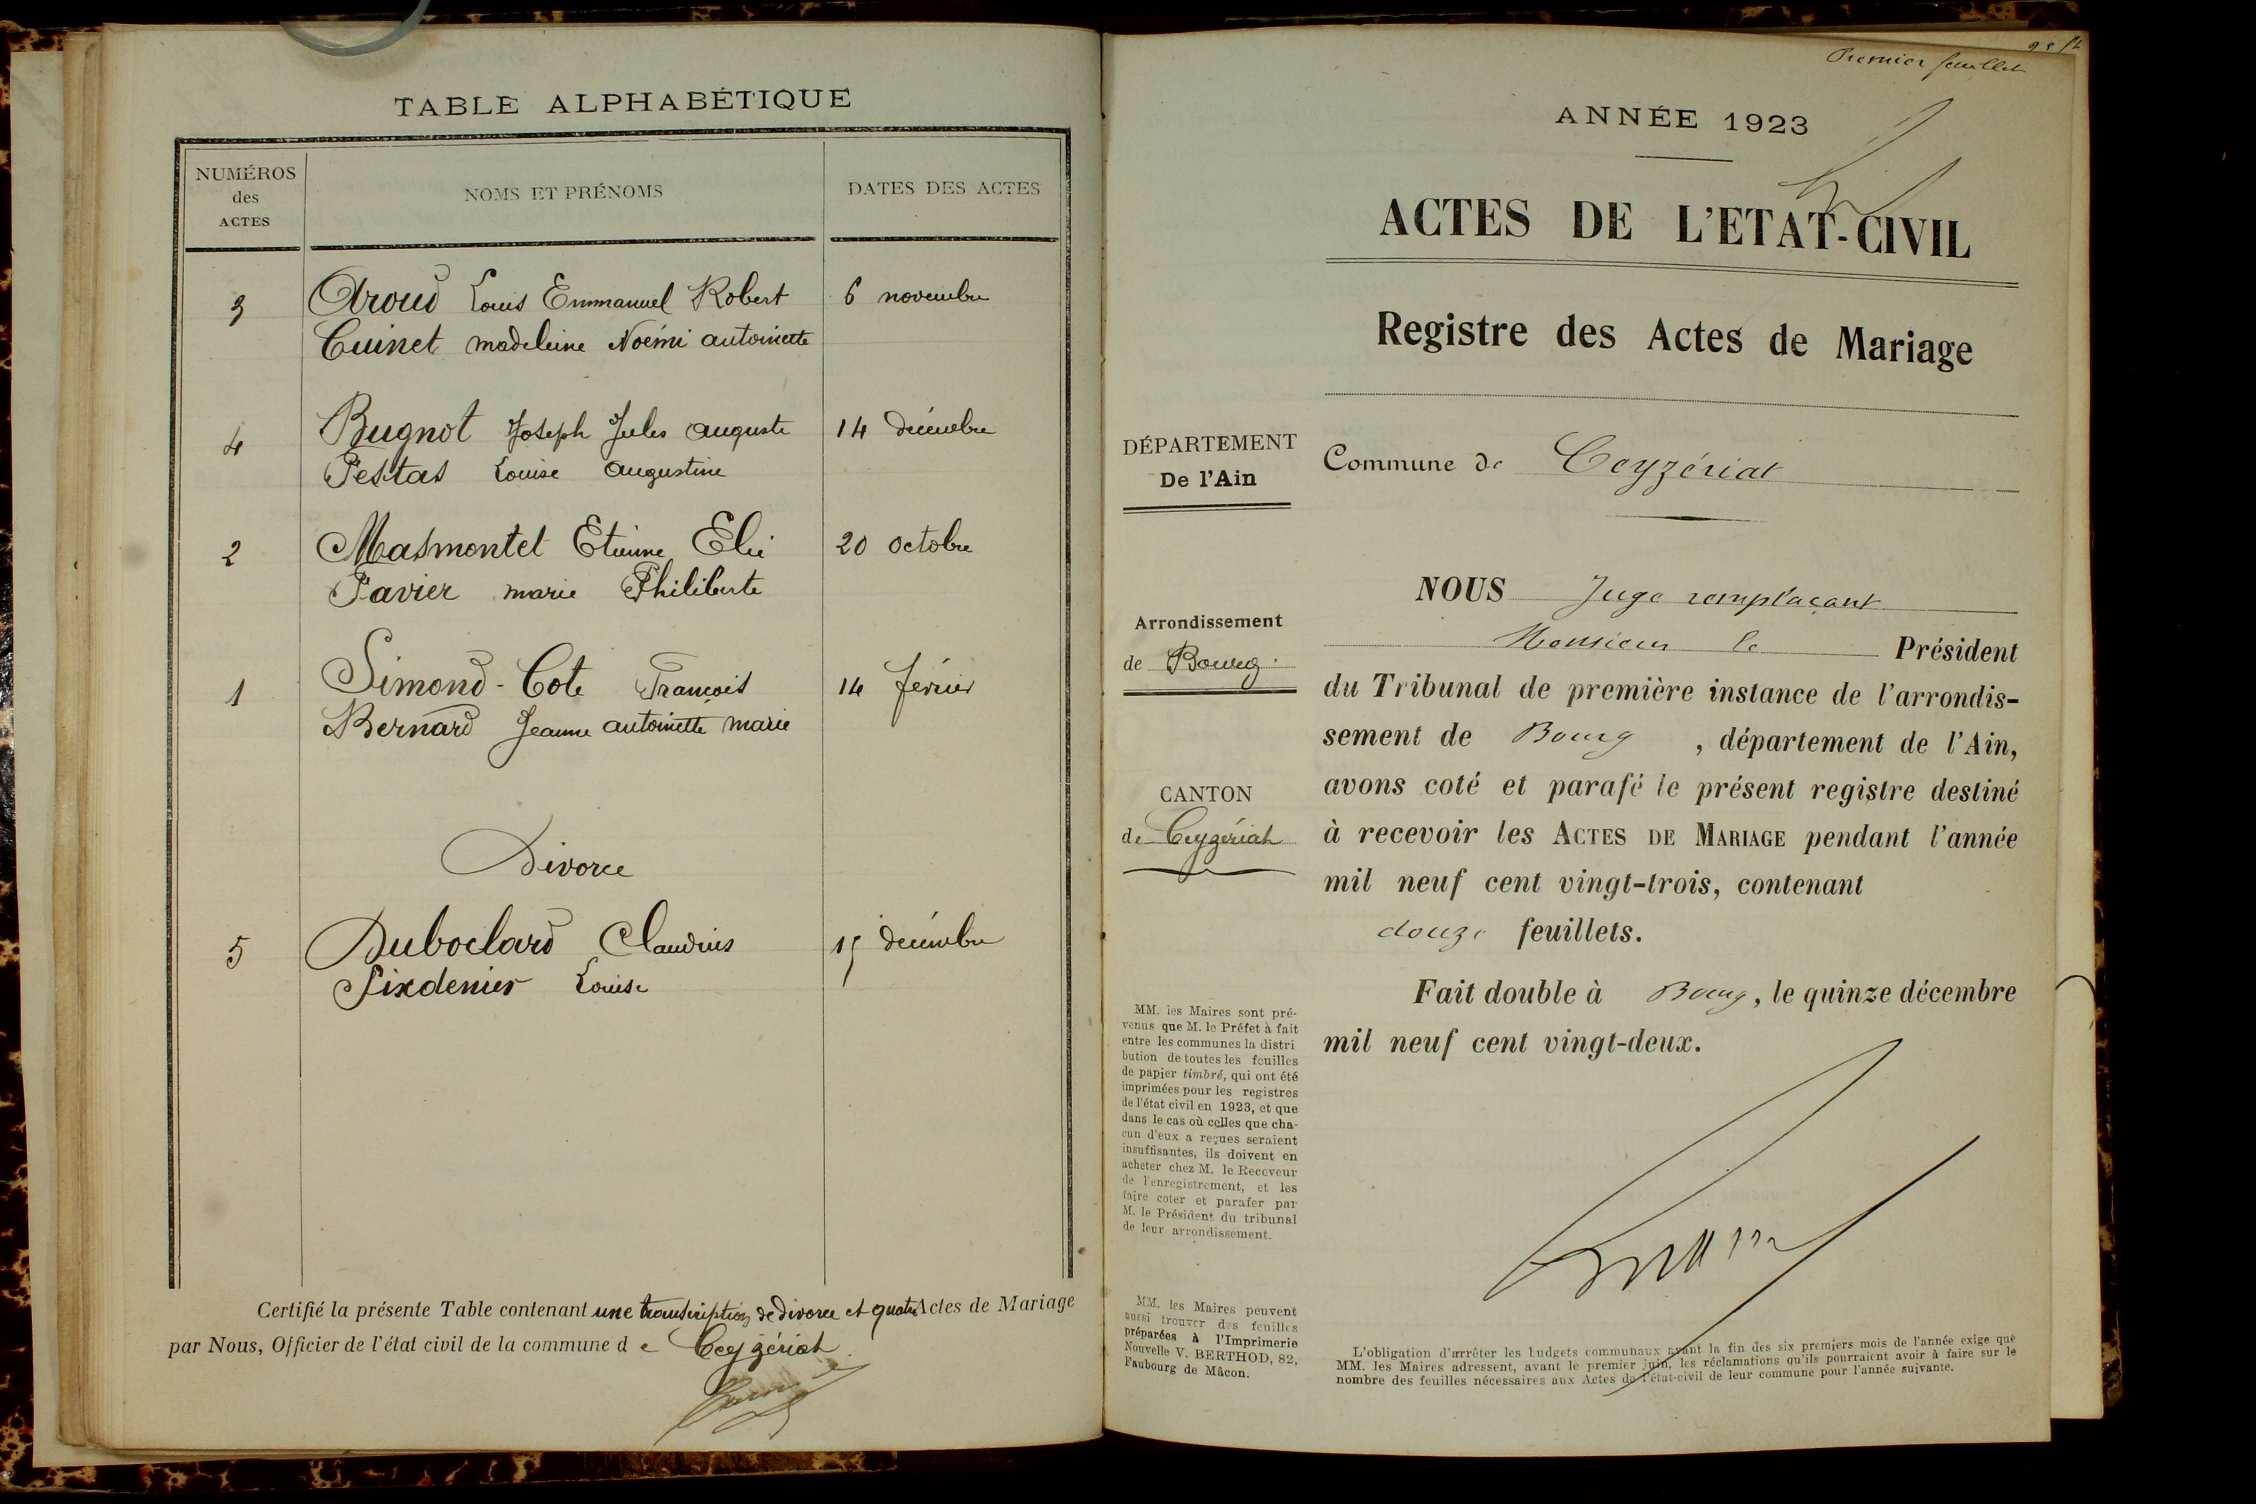 TABLE ALPHABÉTIQUE
NUMÉROS
des
ACTES
NOMS ET PRÉNOMS
DATES DES ACTES
3 Aroud Louis Emmanuel Robert 6 novembre
Cuinet madeleine Noémi antoinette
4 Bugnot Joseph Jules auguste 14 décembre
Pestas Louise augustine
2 Masmontet Etienne Elie 20 octobre
Pavier marie Philiberte
1 Simond-Cote François 14 février
Bernard Jeanne antoinette marie
Divorce
5 Duboclard Claudius 15 décembre
Sixdenier Louise
Certifié la présente Table contenant une transcription de divorce et quatre Actes de Mariage
par Nous, Officier de l'état civil de la commune d e Ceyzériat
Premier feuillet
ANNÉE 1923
ACTES DE L'ETAT-CIVIL
Registre des Actes de Mariage
DÉPARTEMENT
De l'Ain
Commune de Ceyzériat
Arrondissement
de Bourg.
CANTON
de Ceyzériat
NOUS Juge remplaçant
Monsieur le Président
du Tribunal de première instance de l'arrondis-
sement de Bourg , département de l'Ain,
avons coté et parafé le présent registre destiné
à recevoir les ACTES DE MARIAGE pendant l'année
mil neuf cent vingt-trois, contenant
douze feuillets.
Fait double à Bourg, le quinze décembre
mil neuf cent vingt-deux.
MM. les Maires sont pré-
venus que M. le Préfet à fait
entre les communes la distri
bution de toutes les feuilles
de papier timbré, qui ont été
imprimées pour les registres
de l'état civil en 1923, et que
dans le cas où celles que cha-
cun d'eux a reçues seraient
insuffisantes, ils doivent en
acheter chez M. le Receveur
de l'enregistrement, et les
faire coter et parafer par
M. le Président du tribunal
de leur arrondissement.
MM. les Maires peuvent
aussi trouver des feuilles
préparées à l'Imprimerie
Nouvelle V. BERTHOD, 82,
Faubourg de Mâcon.
L'obligation d'arrêter les budgets communaux avant la fin des six premiers mois de l'année exige que
MM. les Maires adressent, avant le premier juin, les réclamations qu'ils pourraient avoir à faire sur le
nombre des feuilles nécessaires aux Actes de l'état-civil de leur commune pour l'année suivante.